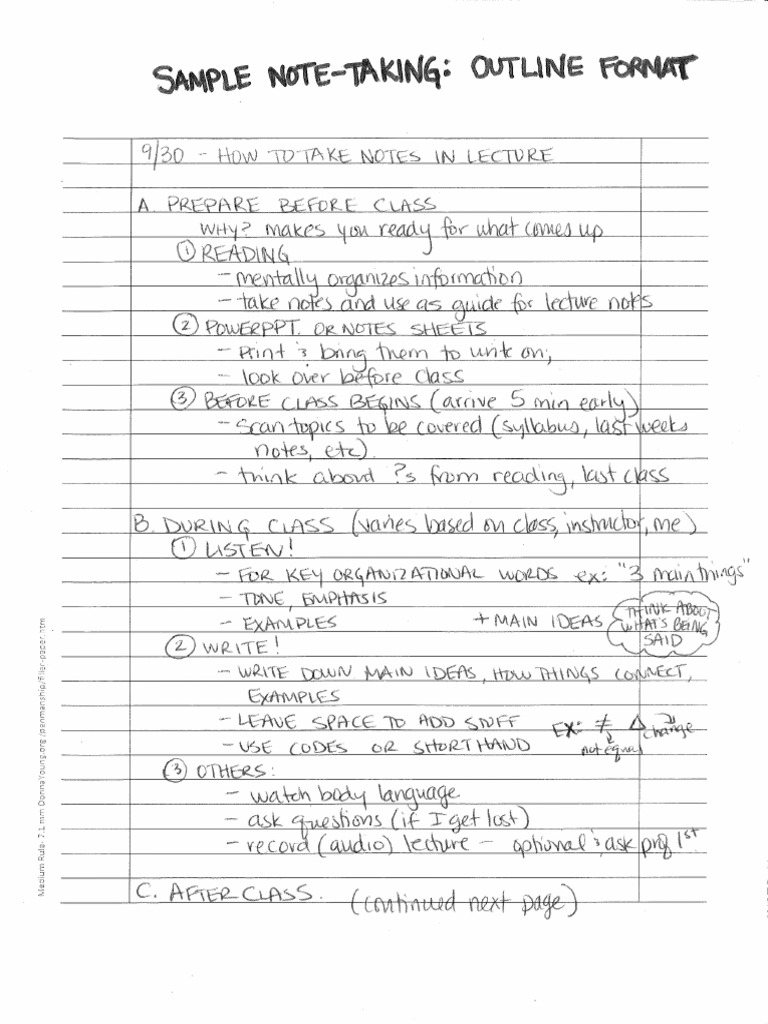 SAMPLE NOTE-TAKING: OUTLINE FORMAT
9/30 - HOW TO TAKE NOTES IN LECTURE
A. PREPARE BEFORE CLASS
WHY? makes you ready for what comes up
① READING
- mentally organizes information
- take notes and use as guide for lecture notes
② POWERPPT. OR NOTES SHEETS
- Print & bring them to write on,
- look over before class
③ BEFORE CLASS BEGINS (arrive 5 min early)
- Scan topics to be covered (syllabus, last weeks
notes, etc).
- think about ?s from reading, last class
B. DURING CLASS (varies based on class, instructor, me)
① LISTEN!
- FOR KEY ORGANIZATIONAL WORDS ex: "3 main things"
- TONE, EMPHASIS
- EXAMPLES + MAIN IDEAS
THINK ABOUT
WHAT'S BEING
SAID
② WRITE!
- WRITE DOWN MAIN IDEAS, HOW THINGS CONNECT,
EXAMPLES
- LEAVE SPACE TO ADD STUFF EX: ≠ Δ change
- USE CODES OR SHORTHAND not equal
③ OTHERS:
- watch body language
- ask questions (if I get lost)
- record (audio) lecture - optional & ask prof 1st
C. AFTER CLASS. (continued next page)
Medium Rule- 7.1 mm DonnaYoung.org /penmanship/filler-paper.htm